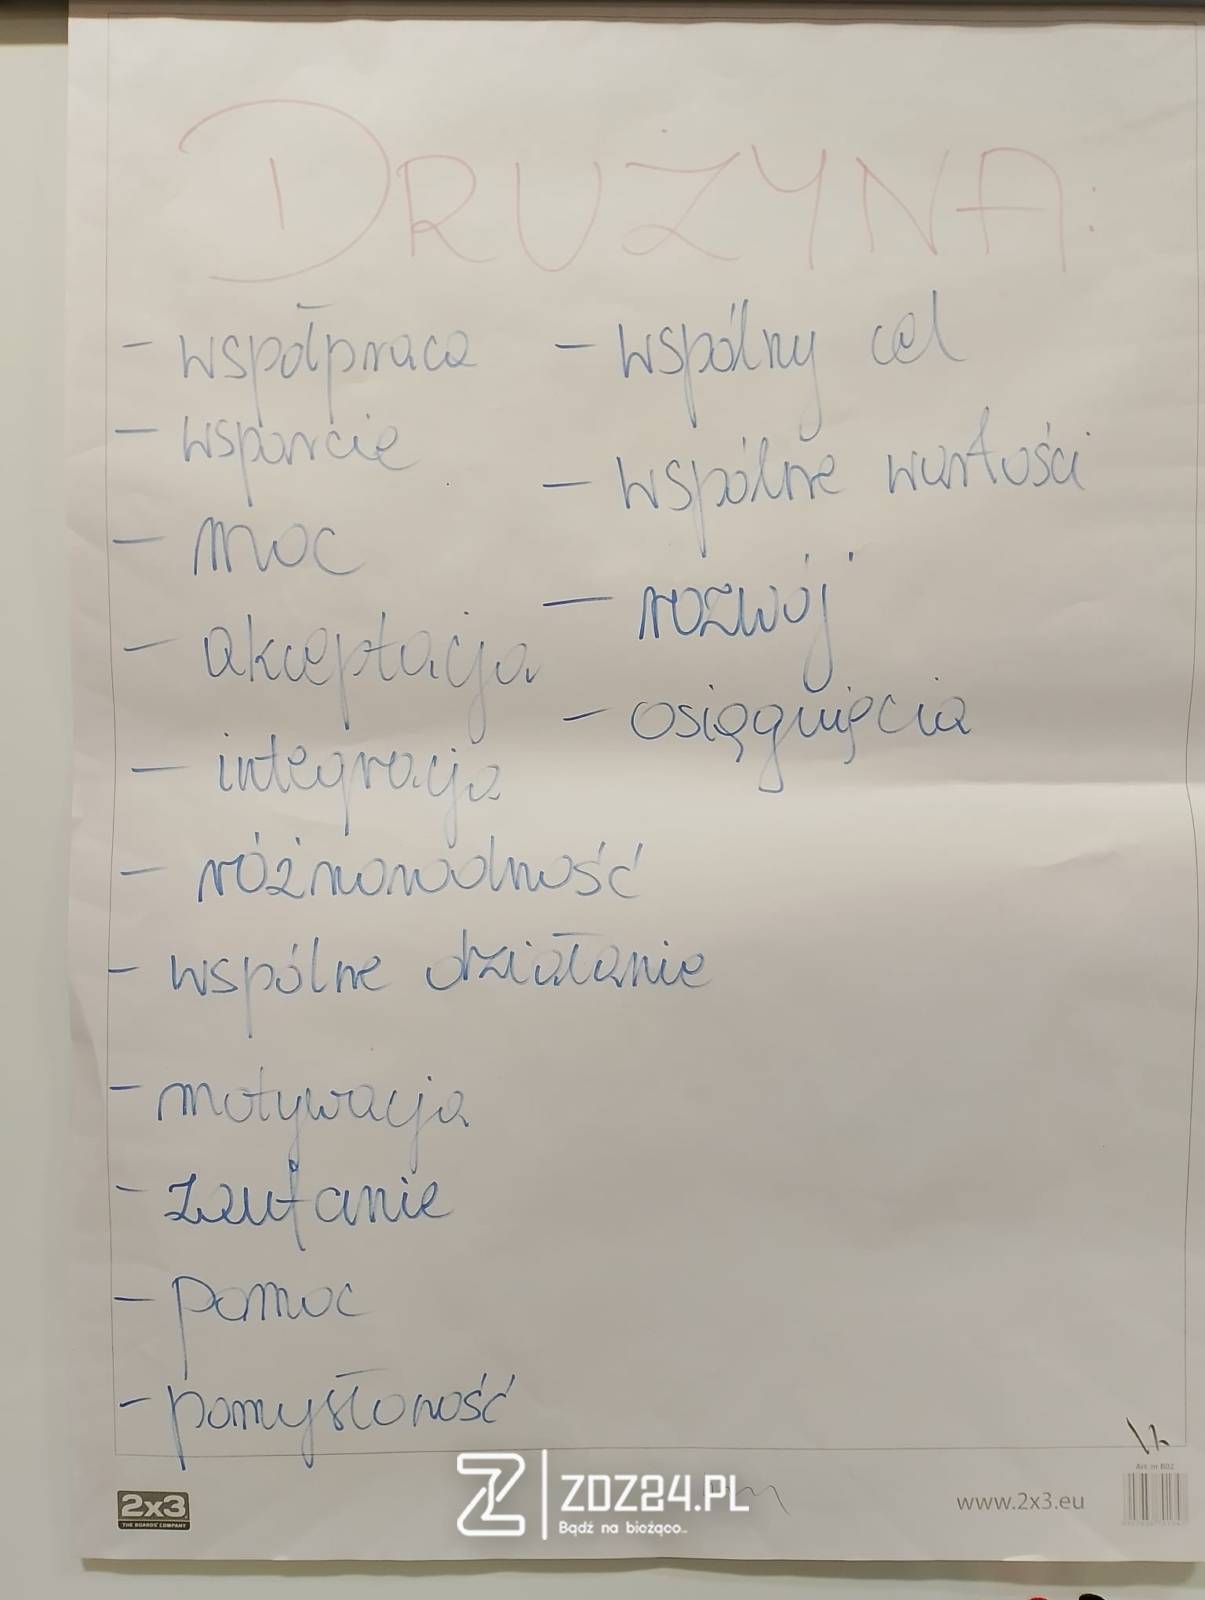 DRUŻYNA:
- współpraca
- wsparcie
- moc
- akceptacja
- integracja
- różnorodność
- wspólne działanie
- motywacja
- zaufanie
- pomoc
- pomysłowość
- wspólny cel
- wspólne wartości
- rozwój
- osiągnięcia
2x3
THE BOARDS' COMPANY
ZDZ24.PL
Bądź na bieżąco..
www.2x3.eu
Art. nr 802